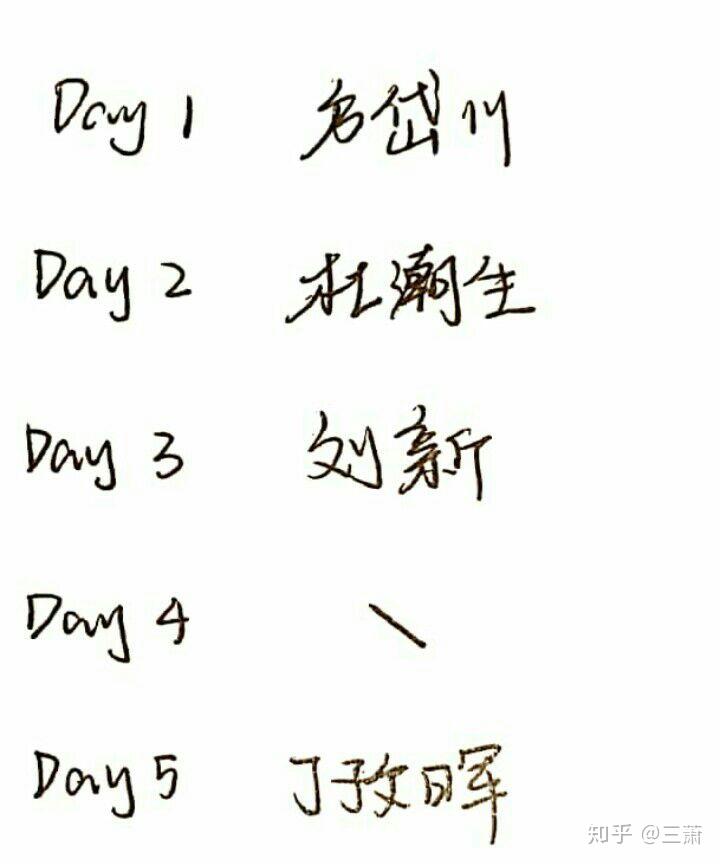 Day 1 名岱川
Day 2 杜潮生
Day 3 刘新
Day 4 \
Day 5 丁孜晖
知乎 @三萧